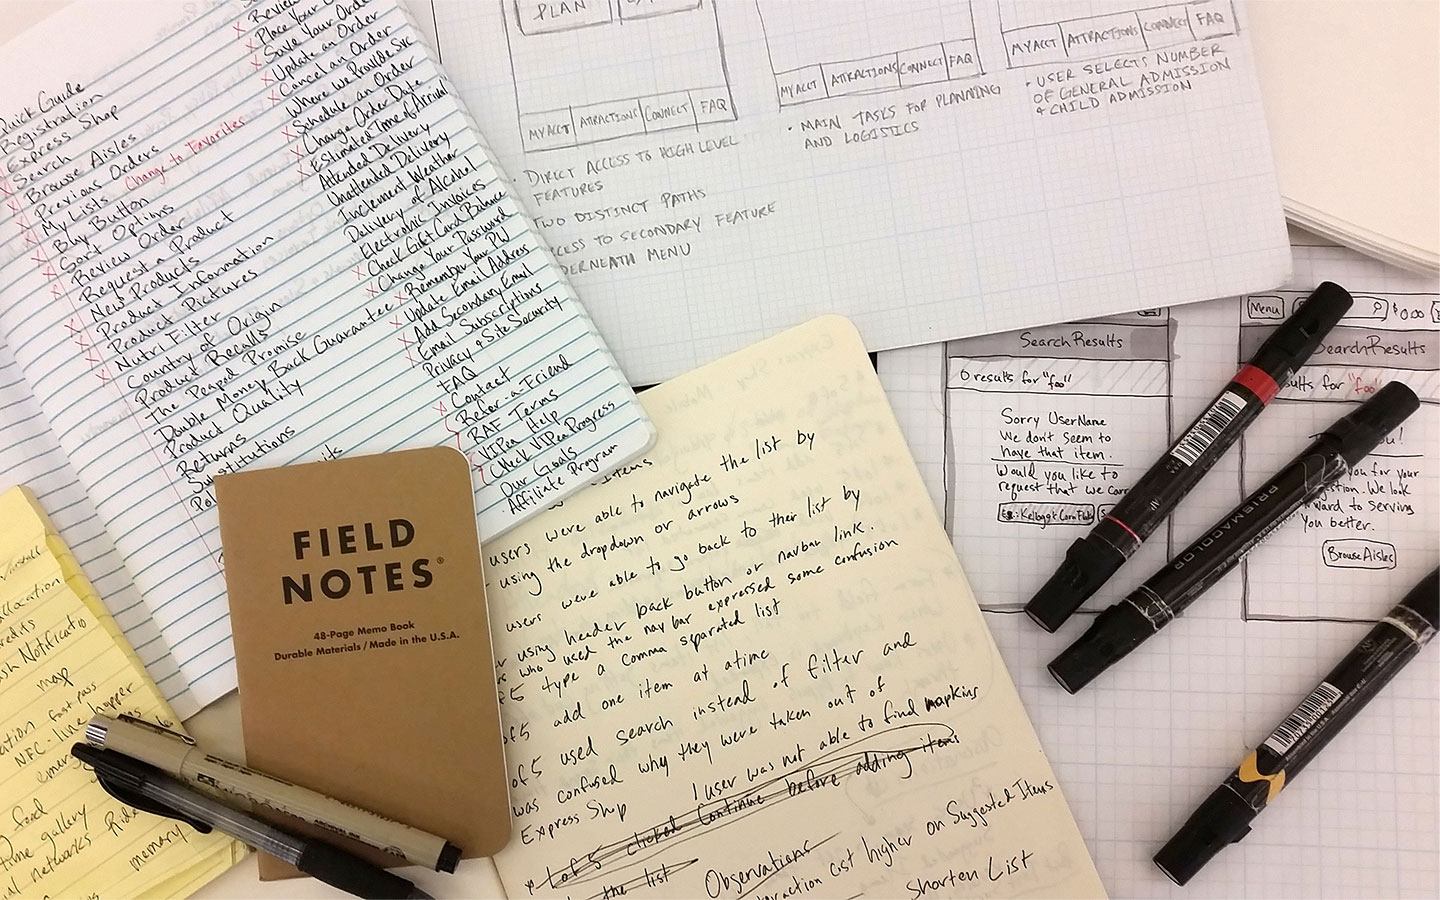 Quick Guide
Registration
Express Shop
Search
Browse Aisles
Previous Orders
My Lists Change to Favorites
Buy Button
Sort Options
Review Order
Request a Product
New Products
Product Information
Product Pictures
Nutri Filter
Country of Origin
Product Recalls
The Peapod Promise
Double Money Back Guarantee
Product Quality
Returns
Review
Place Your
Save Your Order
Update an Order
Cancel an Order
Where We Provide Svc
Schedule an Order
Change Order Date
Estimated Time of Arrival
Attended Delivery
Unattended Delivery
Inclement Weather
Delivery of Alcohol
Electronic Invoices
Check Gift Card Balance
Change Your Password
Remember Your PW
Update Email Address
Add Secondary Email
Email Subscriptions
Privacy & Site Security
FAQ
Contact
Refer-a-Friend
RAF Terms
VIPea Help
Check VIPea Progress
Our Goals
Affiliate Program
PLAN
MY ACCT ATTRACTIONS CONNECT FAQ
• DIRECT ACCESS TO HIGH LEVEL
FEATURES
TWO DISTINCT PATHS
ACCESS TO SECONDARY FEATURE
UNDERNEATH MENU
MY ACCT ATTRACTIONS CONNECT FAQ
• MAIN TASKS FOR PLANNING
AND LOGISTICS
MY ACCT ATTRACTIONS CONNECT FAQ
• USER SELECTS NUMBER
OF GENERAL ADMISSION
& CHILD ADMISSION
Search Results
0 results for "foo"
Sorry UserName
We don't seem to
have that item.
Would you like to
request that we
Menu $0.00
Search Results
results for "foo"
you for your
We look
ward to serving
you better.
Browse Aisles
PRISMACOLOR
FIELD
NOTES®
48-Page Memo Book
Durable Materials / Made in the U.S.A.
items
users were able to navigate the list by
using the dropdown or arrows
users were able to go back to their list by
using header back button or navbar link.
who used the navbar expressed some confusion
of 5 type a comma separated list
of 5 add one item at a time
of 5 used search instead of filter and
was confused why they were taken out of
Express Shop 1 user was not able to find napkins
1 of 5 clicked Continue before adding items
the list
Observations
cost higher on Suggested Items
Shorten List
allocation
credits
map
fast pass
NFC-line hopper
food
time gallery
networks Ride
memory